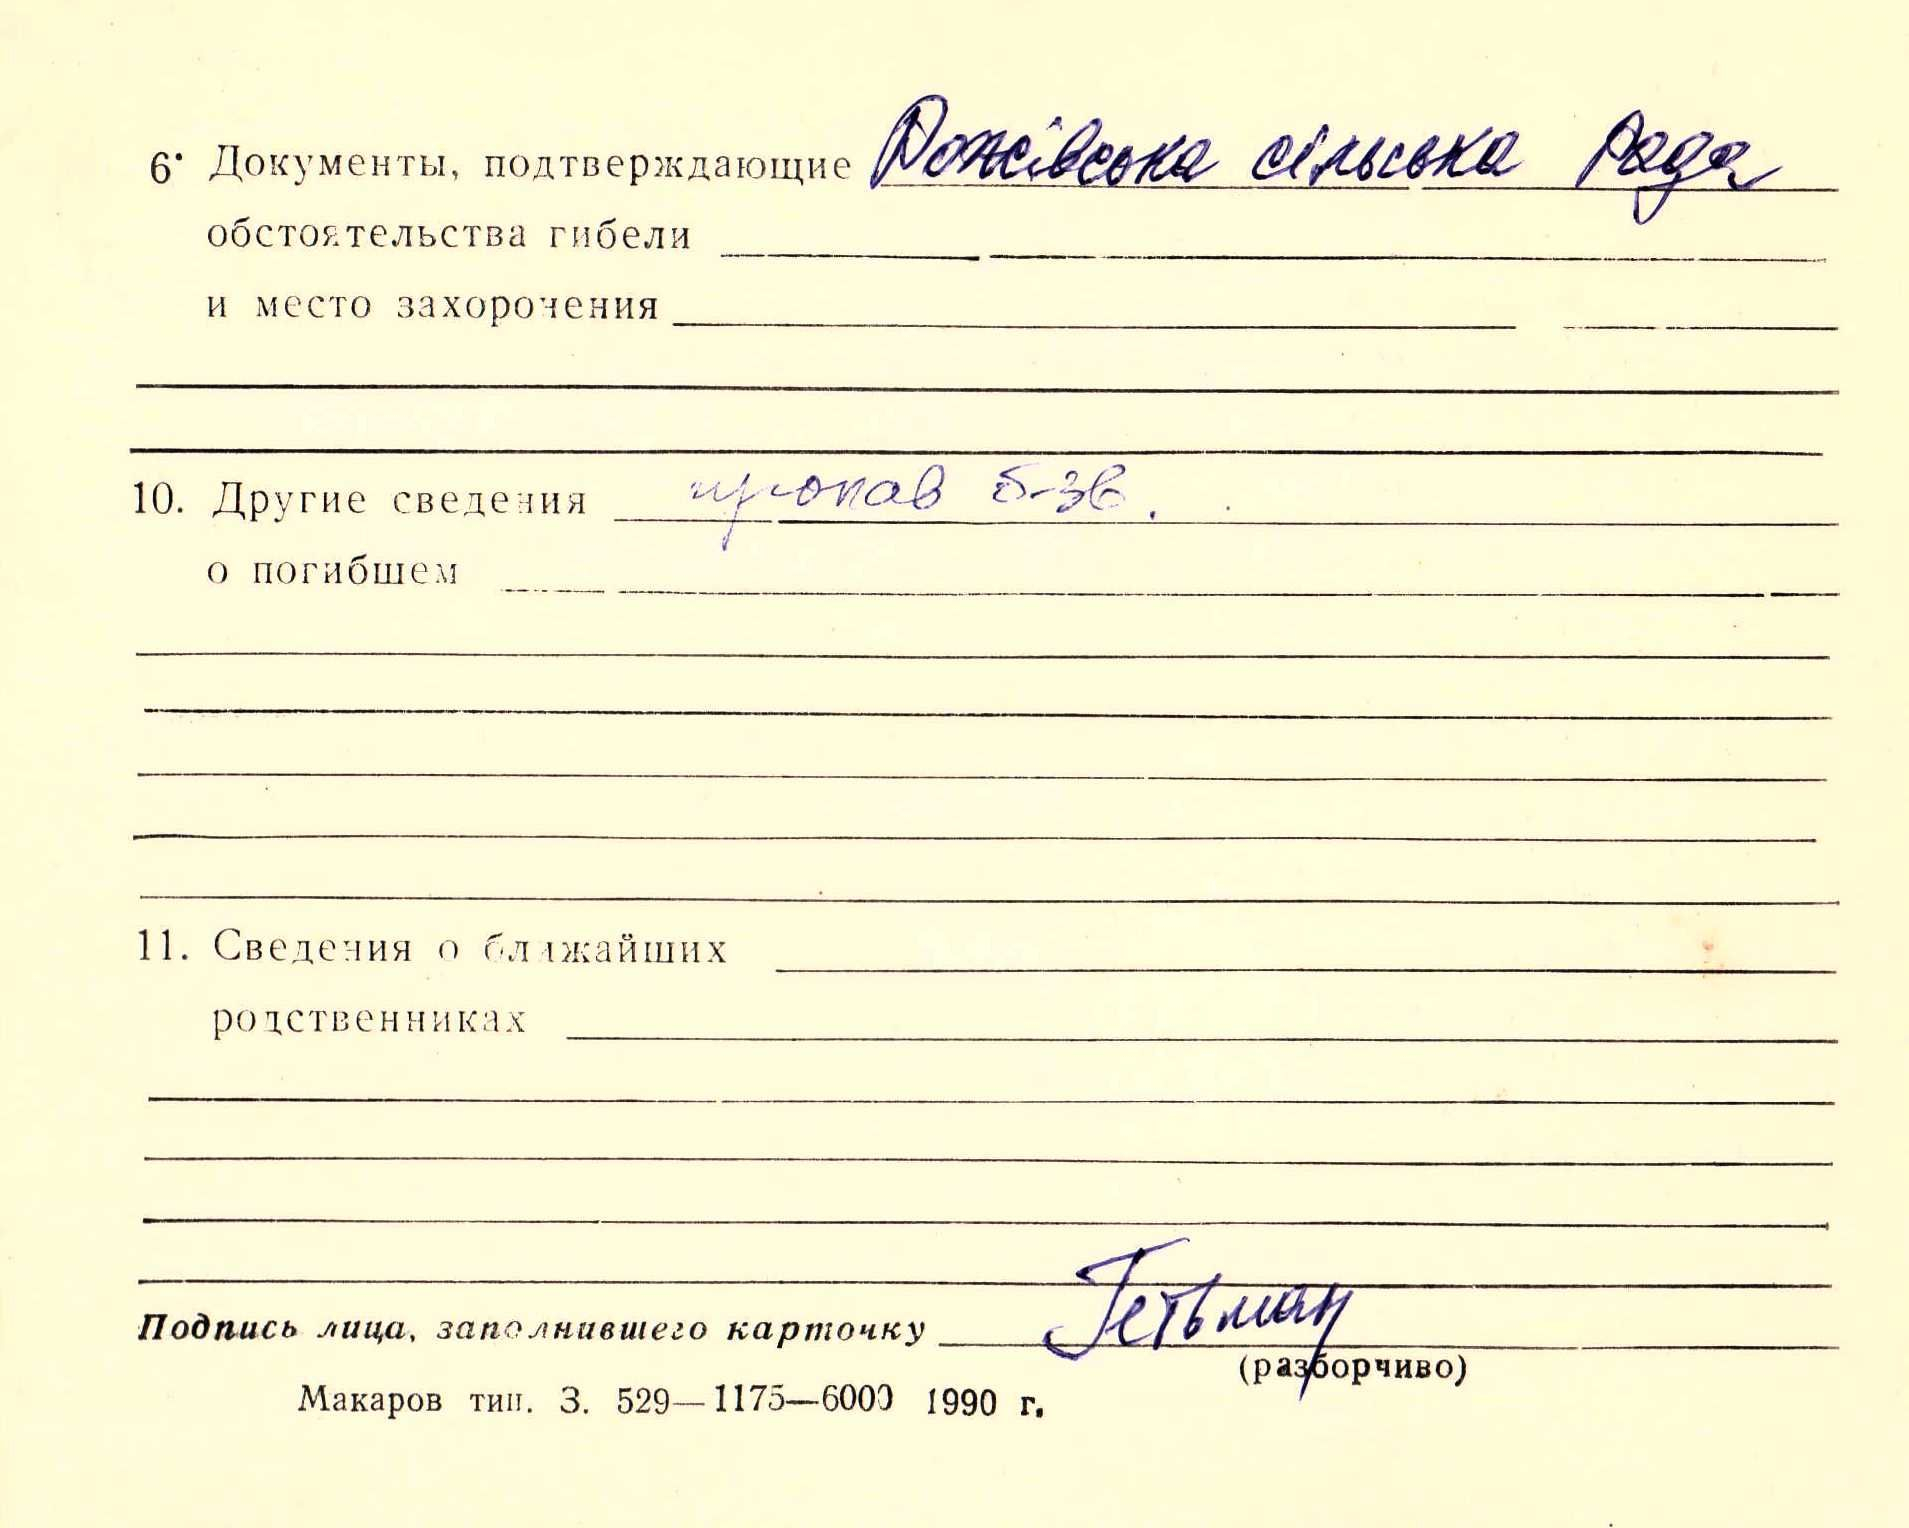 6. Документы, подтверждающие Рожівська сільська рада
обстоятельства гибели
и место захоронения
10. Другие сведения пропав б-зв.
о погибшем
11. Сведения о ближайших
родственниках
Подпись лица, заполнившего карточку Гетьман
(разборчиво)
Макаров тип. З. 529—1175—6000 1990 г.